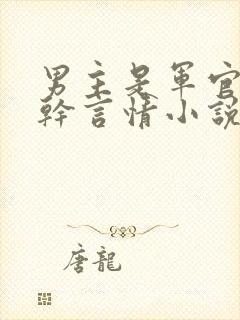 男主是軍官高
幹言情小說
唐龍